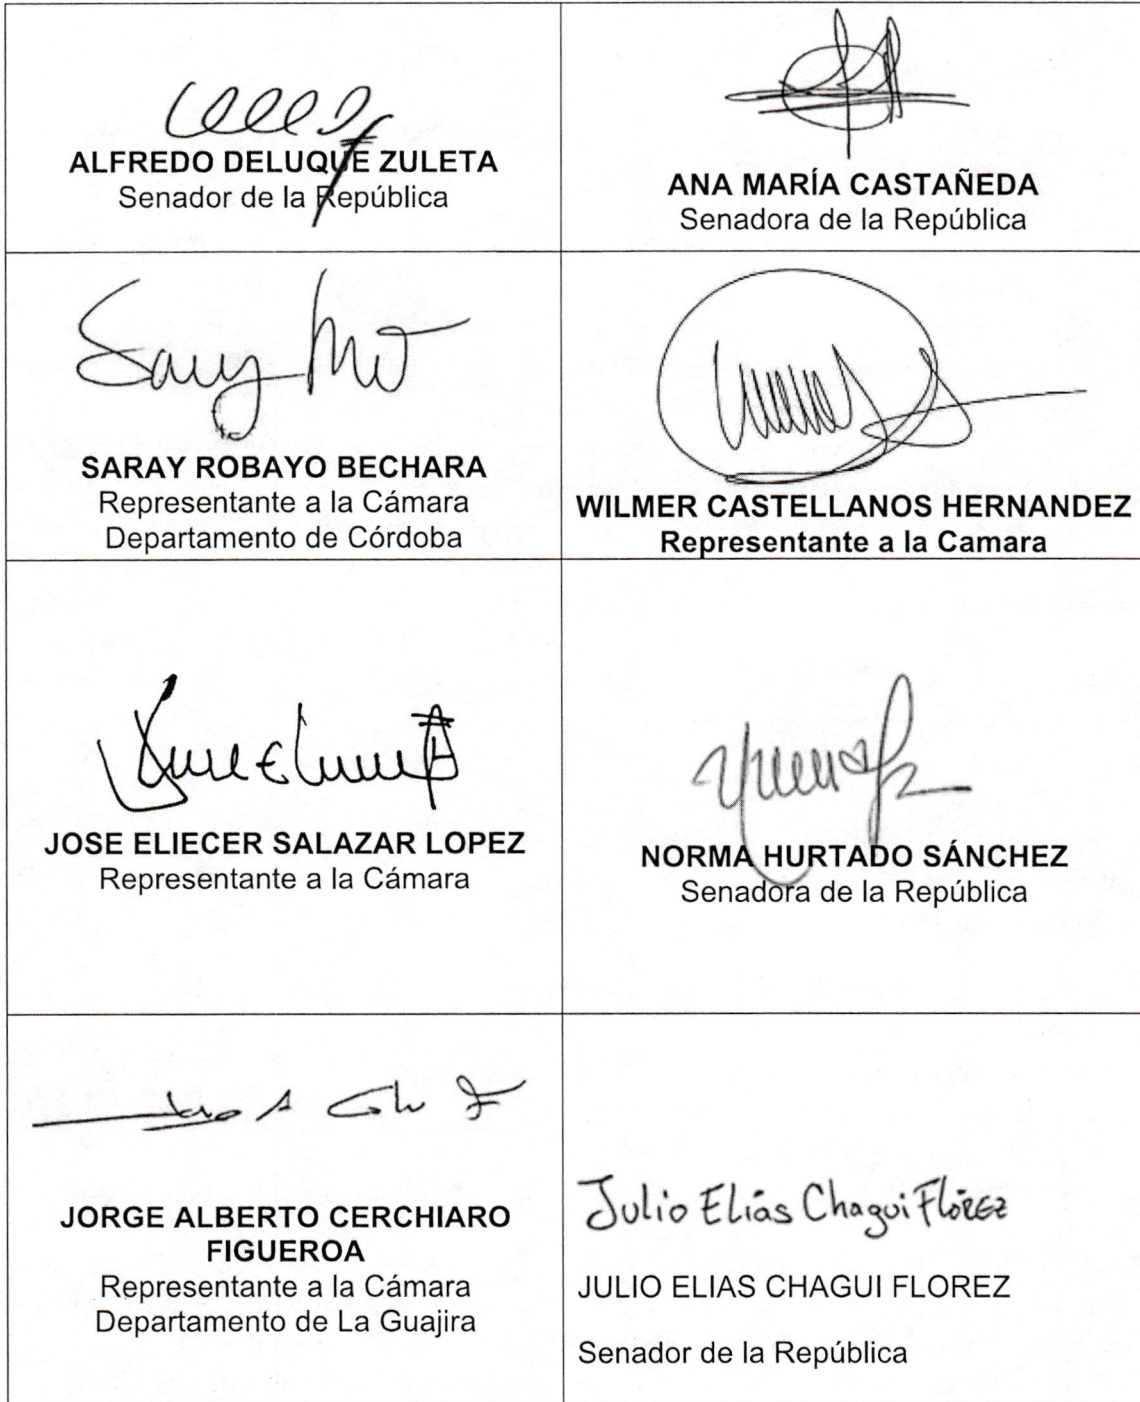 ALFREDO DELUQUE ZULETA
Senador de la República
ANA MARÍA CASTAÑEDA
Senadora de la República
SARAY ROBAYO BECHARA
Representante a la Cámara
Departamento de Córdoba
WILMER CASTELLANOS HERNANDEZ
Representante a la Camara
JOSE ELIECER SALAZAR LOPEZ
Representante a la Cámara
NORMA HURTADO SÁNCHEZ
Senadora de la República
JORGE ALBERTO CERCHIARO
FIGUEROA
Representante a la Cámara
Departamento de La Guajira
Julio Elías Chagui Flórez
JULIO ELIAS CHAGUI FLOREZ
Senador de la República